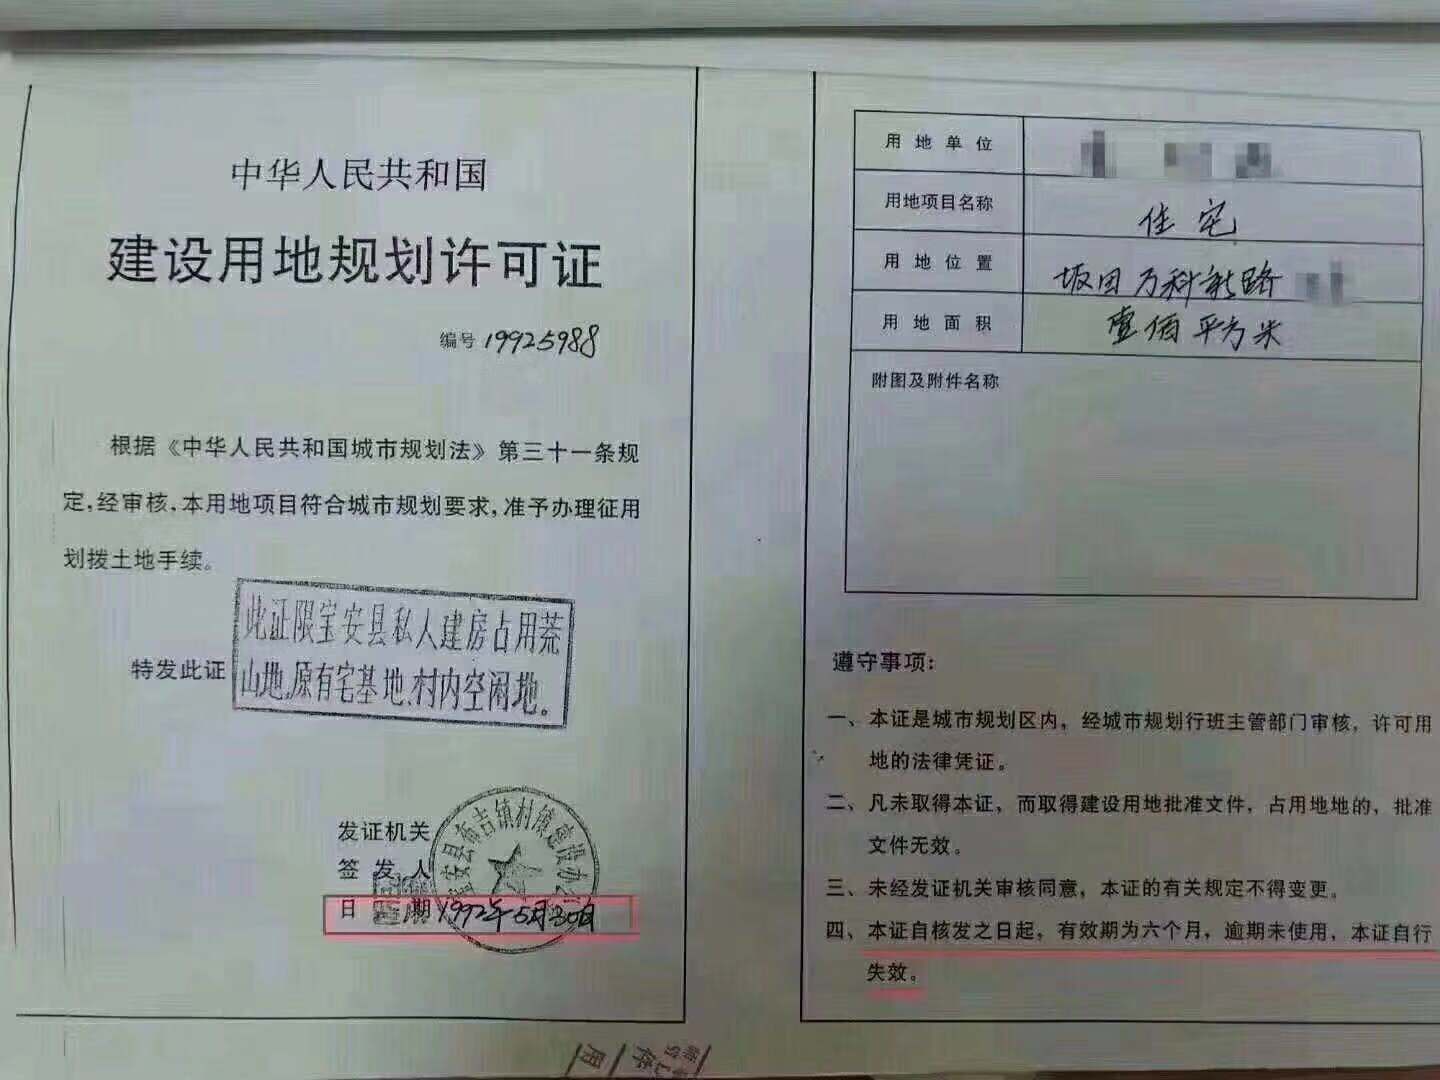 中华人民共和国
建设用地规划许可证
编号 19925988
根据《中华人民共和国城市规划法》第三十一条规
定,经审核,本用地项目符合城市规划要求,准予办理征用
划拨土地手续。
特发此证
此证限宝安县私人建房占用荒
山地、原有宅基地、村内空闲地。
发证机关
签发人
日期 1992年5月30日
宝安县布吉镇村镇建设办公
用地单位
用地项目名称 住宅
用地位置 坂田万科新路
用地面积 壹佰平方米
附图及附件名称
遵守事项:
一、本证是城市规划区内，经城市规划行班主管部门审核，许可用
地的法律凭证。
二、凡未取得本证，而取得建设用地批准文件，占用地地的，批准
文件无效。
三、未经发证机关审核同意，本证的有关规定不得变更。
四、本证自核发之日起，有效期为六个月，逾期未使用，本证自行
失效。